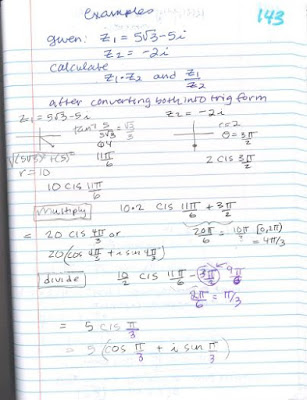 Examples
143
given: z₁ = 5√3 - 5i
z₂ = -2i
calculate
z₁·z₂ and z₁/z₂
after converting both into trig form
z₁ = 5√3 - 5i
z₂ = -2i
tan⁻¹ 5/5√3 = √3/3
r = 2
Q4
θ = 3π/2
√(5√3)² + (5)²
11π/6
2 cis 3π/2
r = 10
10 cis 11π/6
multiply
10·2 cis 11π/6 + 3π/2
= 20 cis 4π/3 or
20π/6 = 10π/3 [0,2π)
= 4π/3
20(cos 4π/3 + i sin 4π/3)
divide
10/2 cis 11π/6 - 3π/2
9π/6
2π/6 = π/3
= 5 cis π/3
= 5(cos π/3 + i sin π/3)